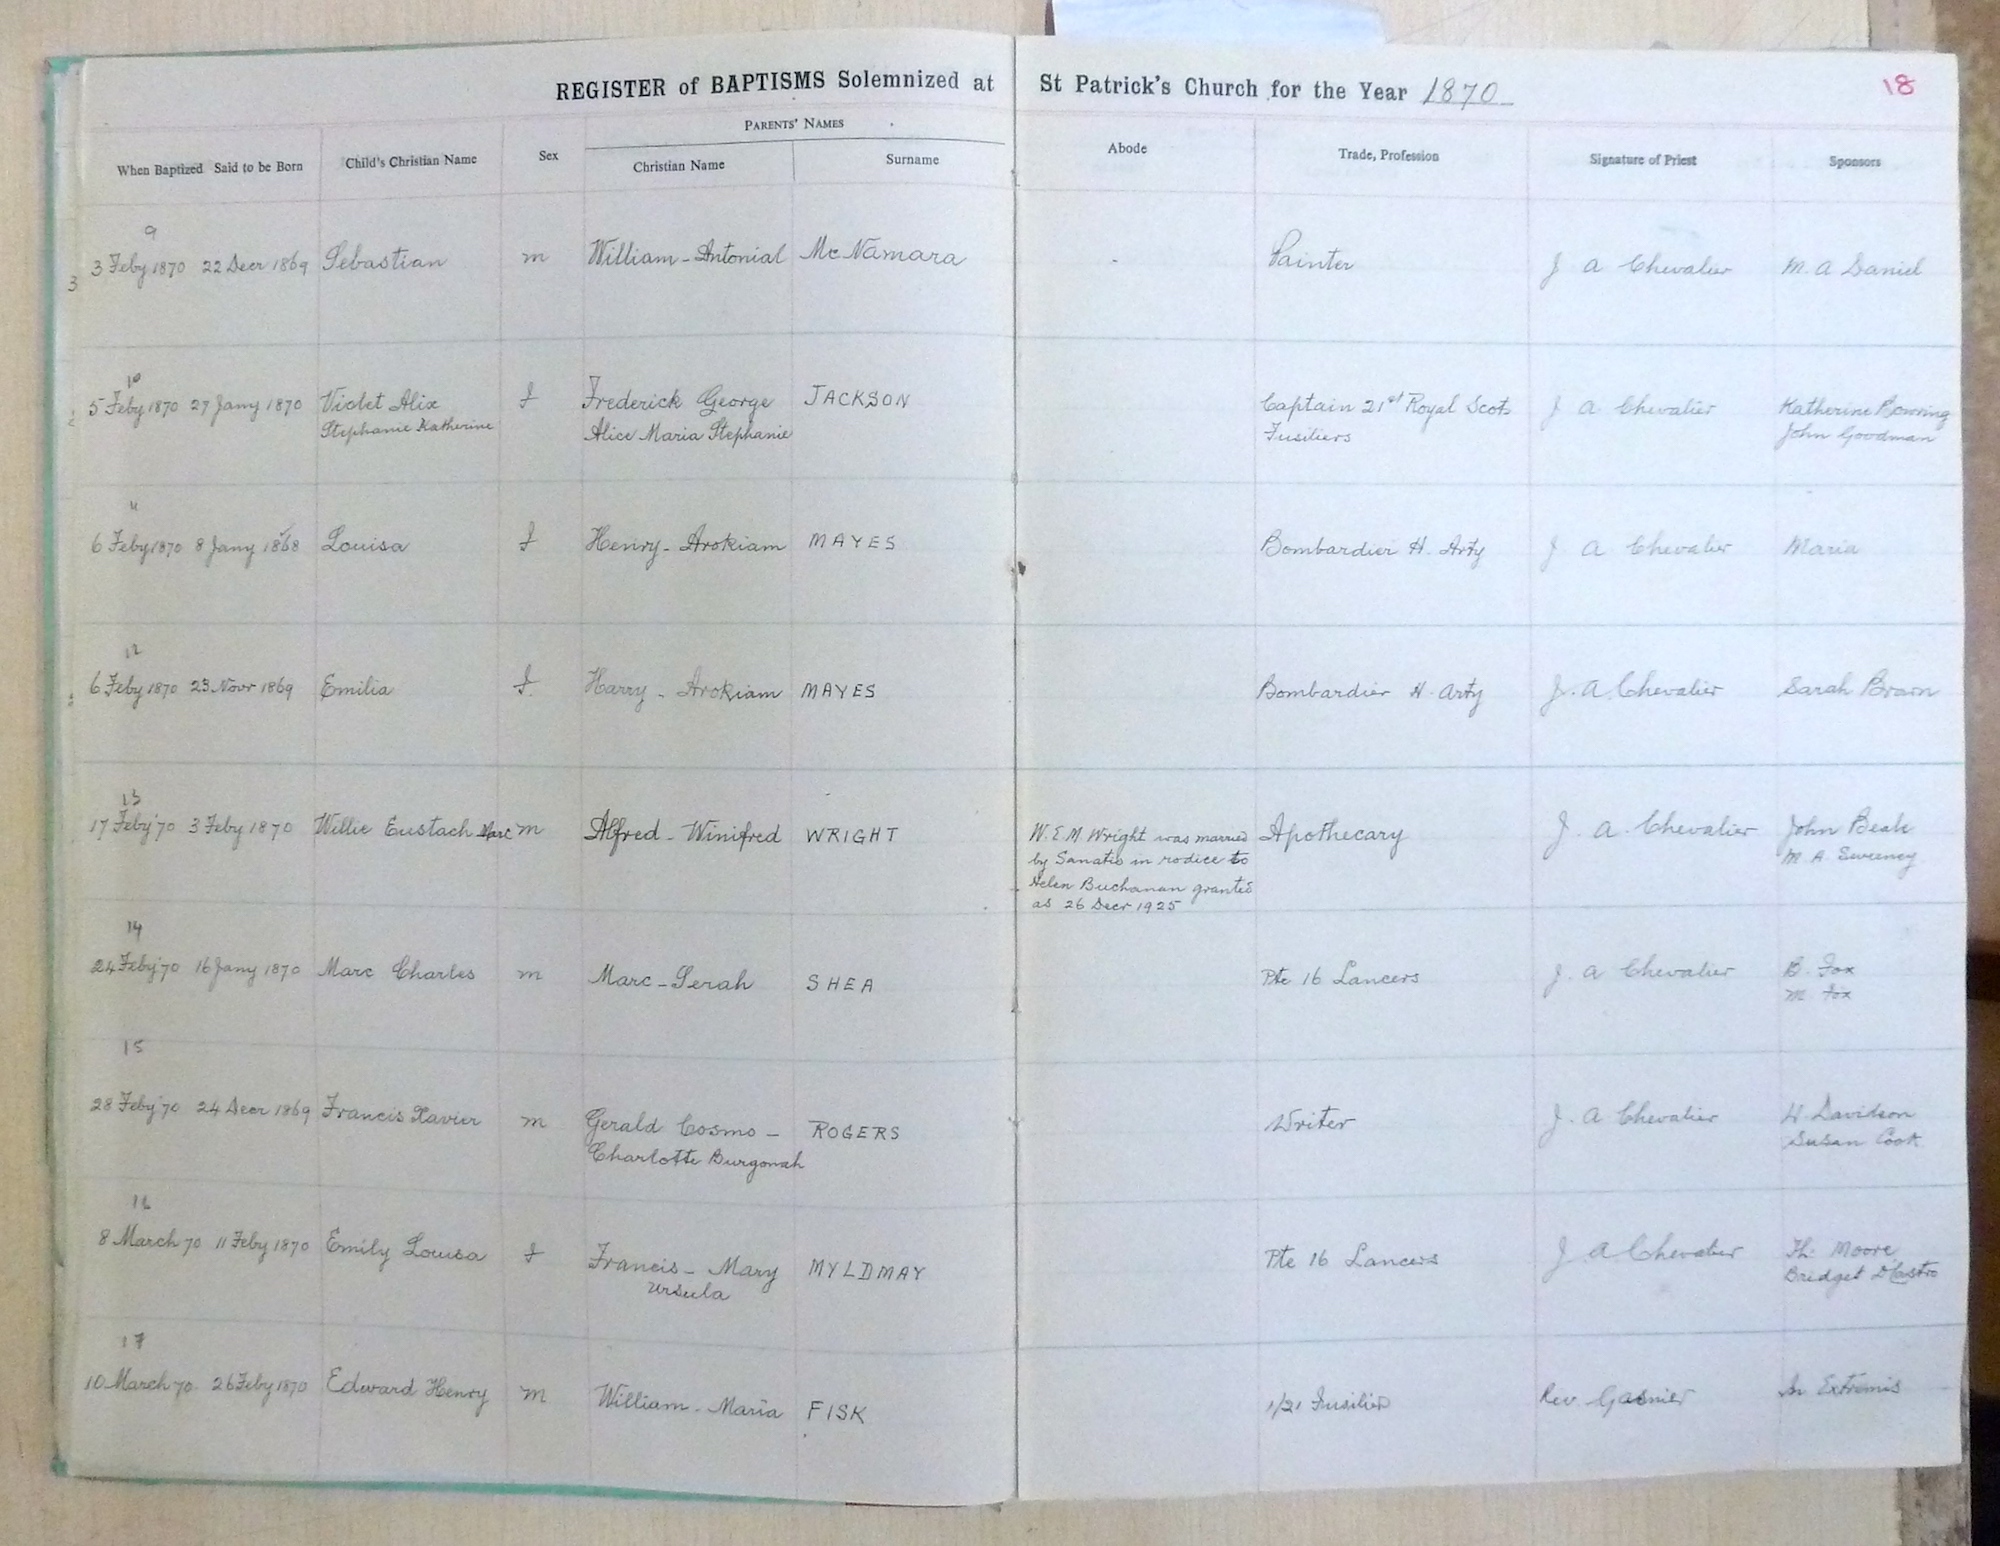 REGISTER of BAPTISMS Solemnized at St Patrick's Church for the Year 1870
18
PARENTS' NAMES
When Baptized Said to be Born Child's Christian Name Sex Christian Name Surname Abode Trade, Profession Signature of Priest Sponsors
9
3 Feby 1870 22 Decr 1869 Sebastian m William - Antonial Mc Namara - Painter J A Chevalier M. A Daniel
10
5 Feby 1870 27 Jany 1870 Violet Alix f Frederick George JACKSON Captain 21st Royal Scots J A Chevalier Katherine Bowring
Stephanie Katherine Alice Maria Stephanie Fusiliers John Goodman
11
6 Feby 1870 8 Jany 1868 Louisa f Henry - Arokiam MAYES Bombardier H. Arty J A Chevalier Maria
12
6 Feby 1870 23 Novr 1869 Emilia f. Harry - Arokiam MAYES Bombardier H. Arty J. A. Chevalier Sarah Brown
13
17 Feby '70 3 Feby 1870 Willie Eustach Marc m Alfred - Winifred WRIGHT W. E. M. Wright was married Apothecary J. A. Chevalier John Beale
by Sanatio in radice to M A Sweeney
Helen Buchanan granted
as 26 Decr 1925
14
24 Feby '70 16 Jany 1870 Marc Charles m Marc - Serah SHEA Pte 16 Lancers J. A Chevalier B. Fox
M. Fox
15
28 Feby '70 24 Decr 1869 Francis Xavier m Gerald Cosmo - ROGERS Writer J. A Chevalier H Davidson
Charlotte Burgonah Susan Cook
16
8 March 70 11 Feby 1870 Emily Louisa f Francis - Mary MYLDMAY Pte 16 Lancers J A Chevalier Th: Moore
Ursula Bridget DCastro
17
10 March 70. 26 Feby 1870 Edward Henry m William - Maria FISK 1/21 Fusilier Rev. Gasnier In Extremis